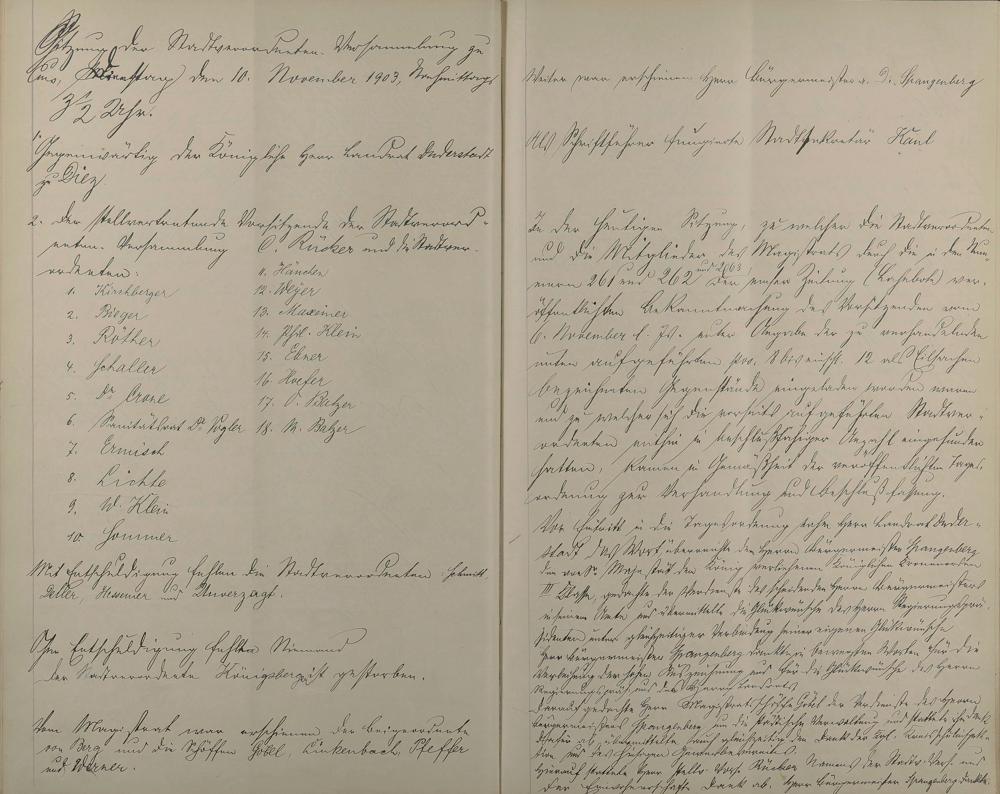 Sitzung der Stadtverordneten-Versammlung zu
Ems, Dienstag den 10. November 1903, Nachmittags
3 1/2 Uhr.
Gegenwärtig der Königliche Herr Landrat Duderstadt
zu Diez.
2. der stellvertretende Vorsitzende der Stadtverord-
neten-Versammlung C. Rücker und die Stadtver-
ordneten:
1. Kirchberger
2. Bieger
3. Röther
4. Schaller
5. Dr. Crone
6. Sanitätsrat Dr. Vogler
7. Ermisch
8. Lichte
9. W. Klein
10 Sommer
11. Hänchen
12. Weyer
13. Maxeiner
14. Phil. Klein
15. Ebner
16. Hoefer
17. O. Balzer
18. M. Balzer
Mit Entschuldigung fehlen die Stadtverordneten Schmitt
Heuner und Unverzagt.
Ohne Entschuldigung fehlte Niemand
Der Stadtverordnete Königsberger ist gestorben.
Vom Magistrat war erschienen der Beigeordnete
von Berg und die Schöffen Göbel, Linkenbach, Pfeffer
und Werner.
Weiter war erschienen Herr Bürgermeister a. D. Spangenberg
Als Schriftführer fungierte Stadtsekretär Kaul
In der heutigen Sitzung, zu welcher die Stadtverordneten
und die Mitglieder des Magistrats durch die in den Num-
mern 261 und 262 und 263 der Emser Zeitung (Lahnbote) ver-
öffentlichten Bekanntmachung des Vorsitzenden vom
6. November l. Js. unter Angabe der zu verhandelnden
unten aufgeführten pos. 8 bis einschl. 12 als Eilsachen
bezeichneten Gegenstände eingeladen worden waren
und zu welcher sich die vorseits aufgeführten Stadtver-
ordneten mithin in beschlußfähiger Anzahl eingefunden
hatten, kamen in Gemäßheit der veröffentlichten Tages-
ordnung zur Verhandlung und Beschlußfassung.
Vor Eintritt in die Tagesordnung nahm Herr Landrat Duder-
stadt das Wort, überreichte dem Herrn Bürgermeister Spangenberg
den von Sr. Majestät dem König verliehenen Königlichen Kronenorden
III Klasse, gedachte der Verdienste des scheidenden Herrn Bürgermeisters
in seinem Amte und übermittelte die Glückwünsche des Herrn Regierungsprä-
sidenten unter gleichzeitiger Verbindung seiner eigenen Glückwünsche
Herr Bürgermeister Spangenberg dankte in bewegten Worten für die
Verleihung der hohen Auszeichnung und für die Glückwünsche des Herrn
Regierungspräsidenten und des Herrn Landrats
Darauf gedachte Herr Magistratsschöffe Göbel der Verdienste des Herrn
Bürgermeisters Spangenberg um die städtische Verwaltung und stattete den Dank
dafür ab, übermittelte auch gleichzeitig den Dank der Kgl. Kreisschulinspek-
tion und des hiesigen Gewerbevereins.
Hierauf stattete Herr stellv. Vors. Rücker Namens der Stadtv. Vers. und
der Einwohnerschaft Dank ab. Herr Bürgermeister Spangenberg dankte